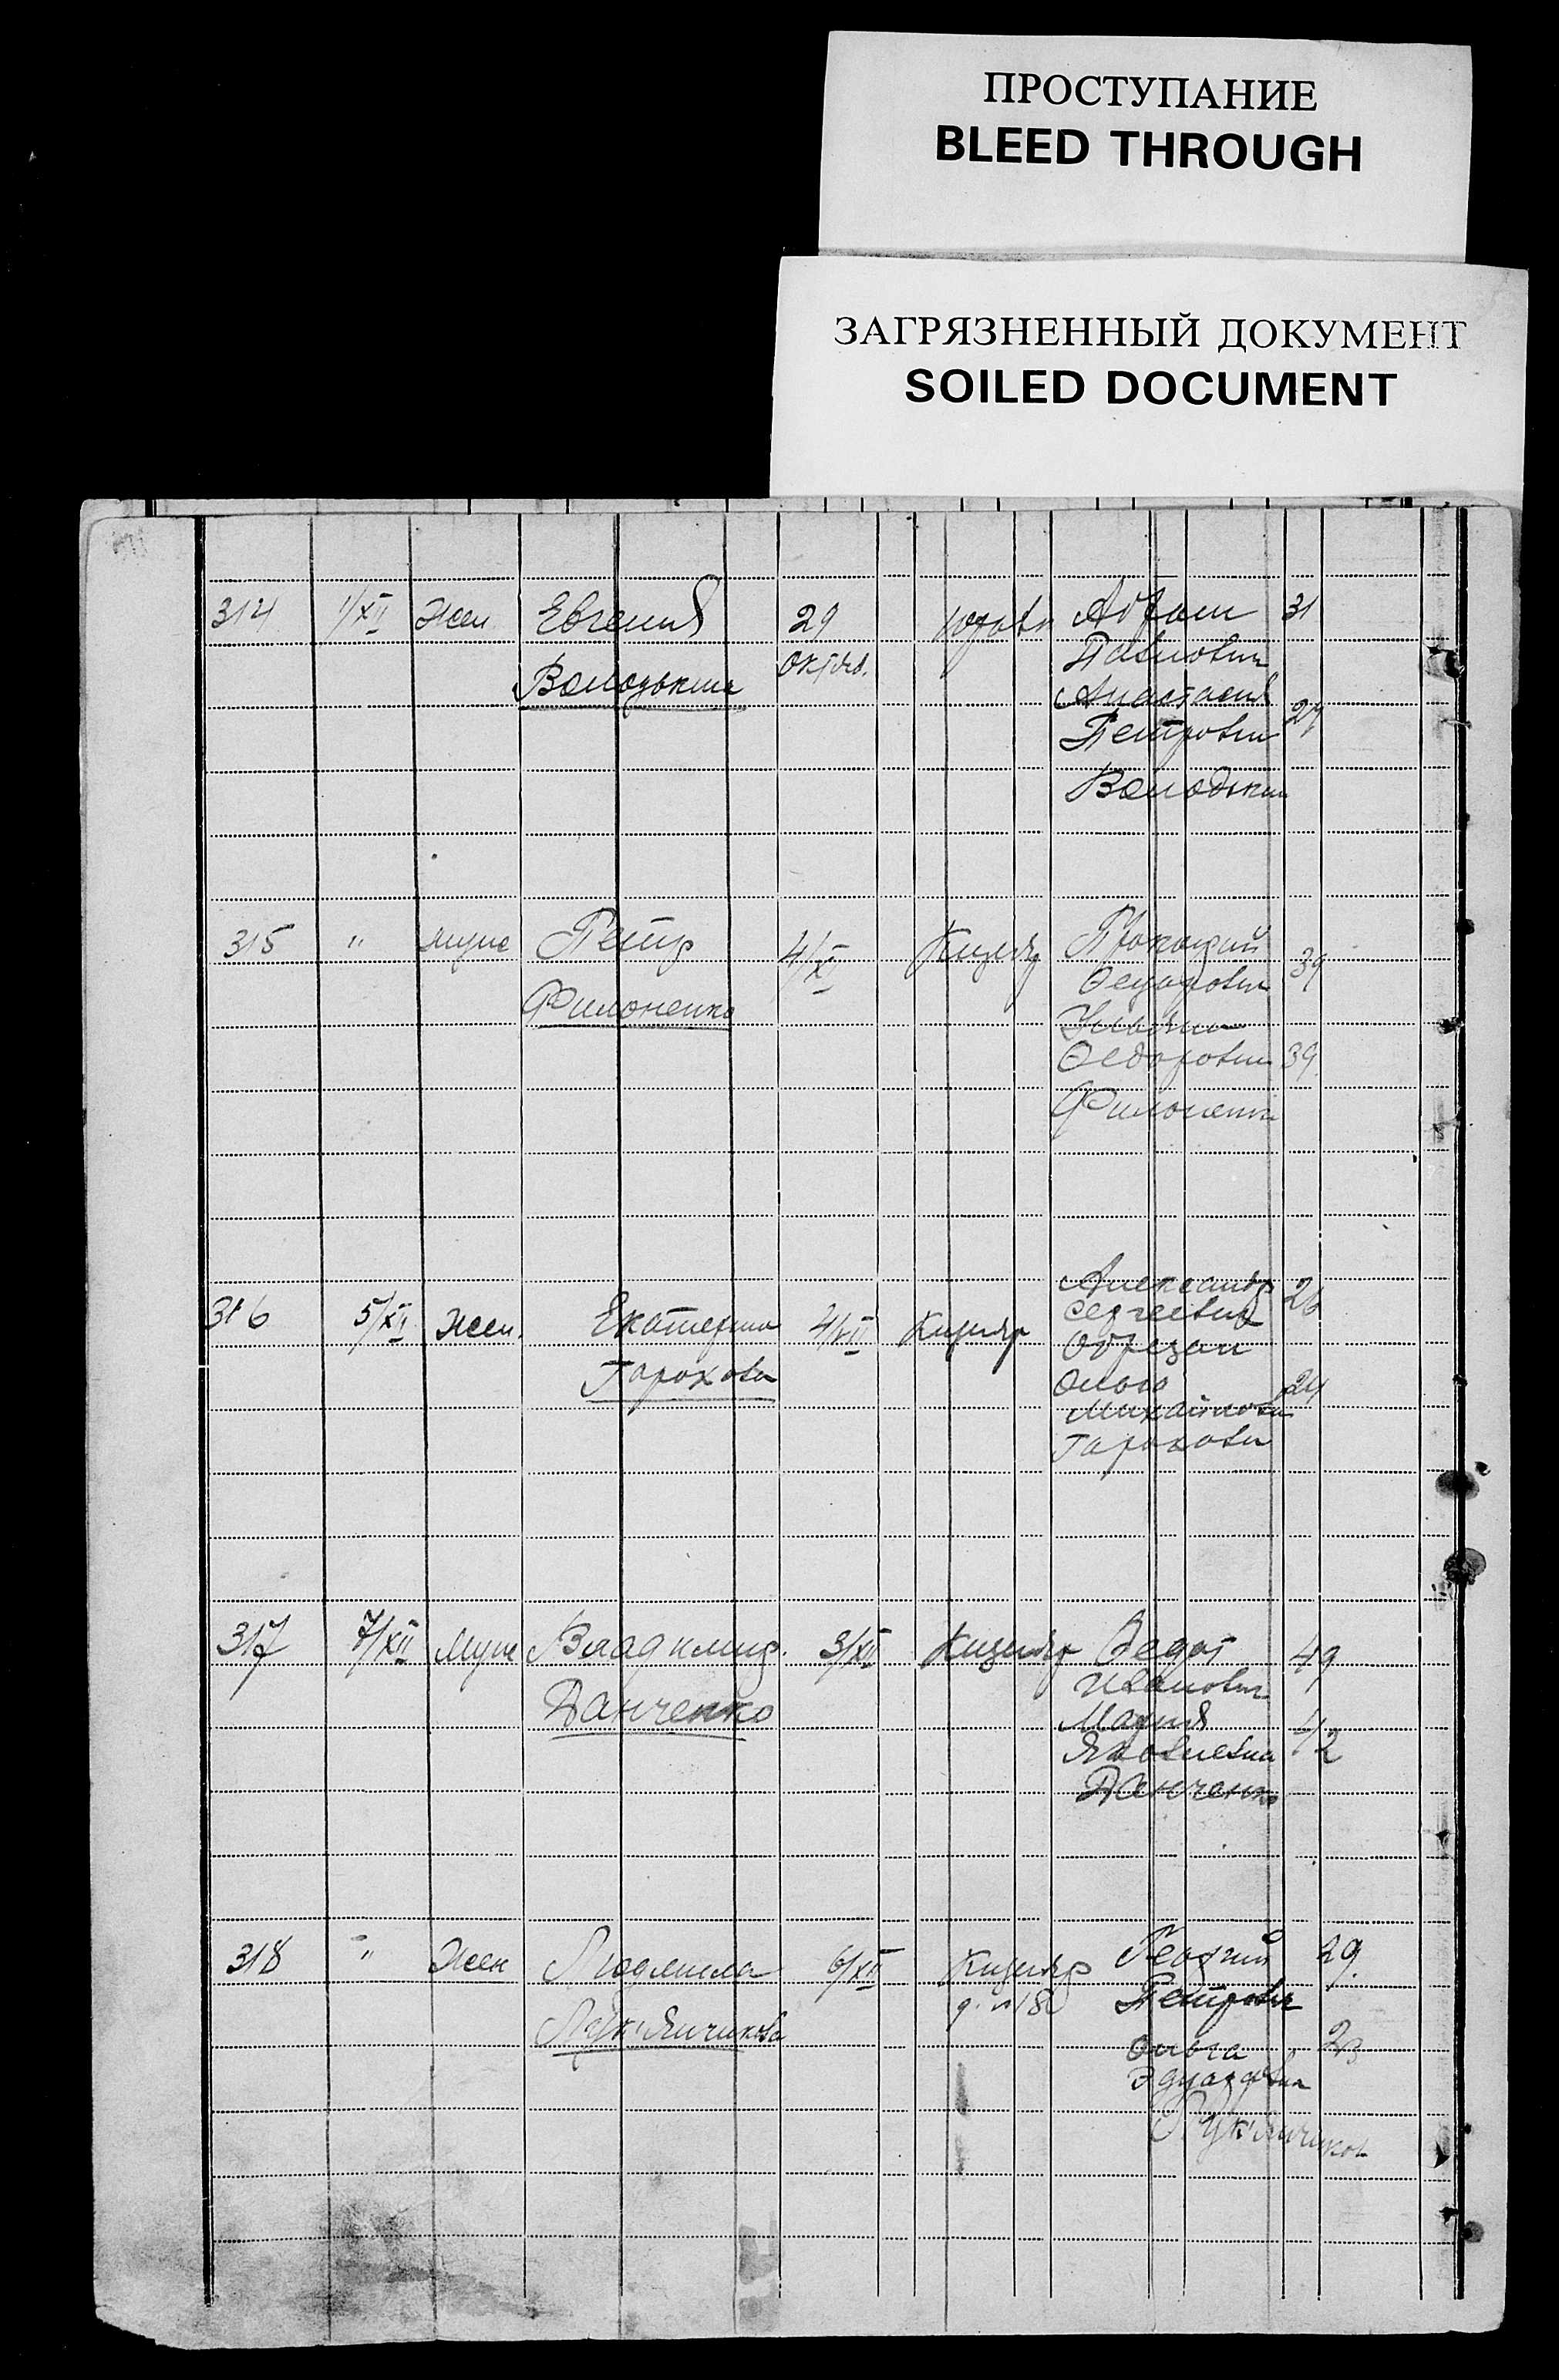 ПРОСТУПАНИЕ
BLEED THROUGH
ЗАГРЯЗНЕННЫЙ ДОКУМЕНТ
SOILED DOCUMENT
314 1/XII Жен Евгения 29 Абрам 31
Володькина октяб. Павлович
Анастасия 27
Петровн
Володькин
315 " муж Петр 4/XI Кизляр Прокофий 39
Филоненко Федорович
Ульяна
Федоровн 39
Филоненко
Александр 26
316 5/XII Жен. Екатерина Кизляр Сергеевич
Горохова Обрезан
Ольга 24
Михайловн
Горохова
317 7/XII Муж Владимир. 3/XII Кизляр Федот 49
Данченко Иванович
Мария 42
Яковлевна
Данченко
318 " Жен Людмила 6/XII Кизляр Георгий 29.
Лук'янчикова д. № 18 Петрович
Ольга 23
Эдуардовна
Лук'янчиков